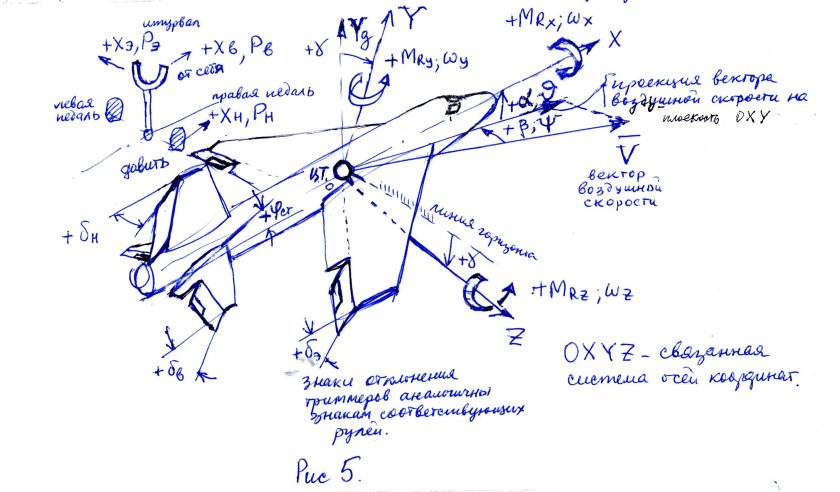 штурвал
+Xэ, Pэ
+Xв, Pв
от себя
левая
педаль
правая педаль
+Xн, Pн
давить
+γ
Yg
Y
+MRy; ωy
+MRx; ωx
X
+α, ϑ
+β, Ψ
проекция вектора
воздушной скорости на
плоскость OXY
V
вектор
воздушной
скорости
ц.т.
O
линия горизонта
+γ
+MRz; ωz
Z
+φст
+δн
+δв
+δэ
знаки отклонения
триммеров аналогичны
знакам соответствующих
рулей.
OXYZ - связанная
система осей координат.
Рис 5.